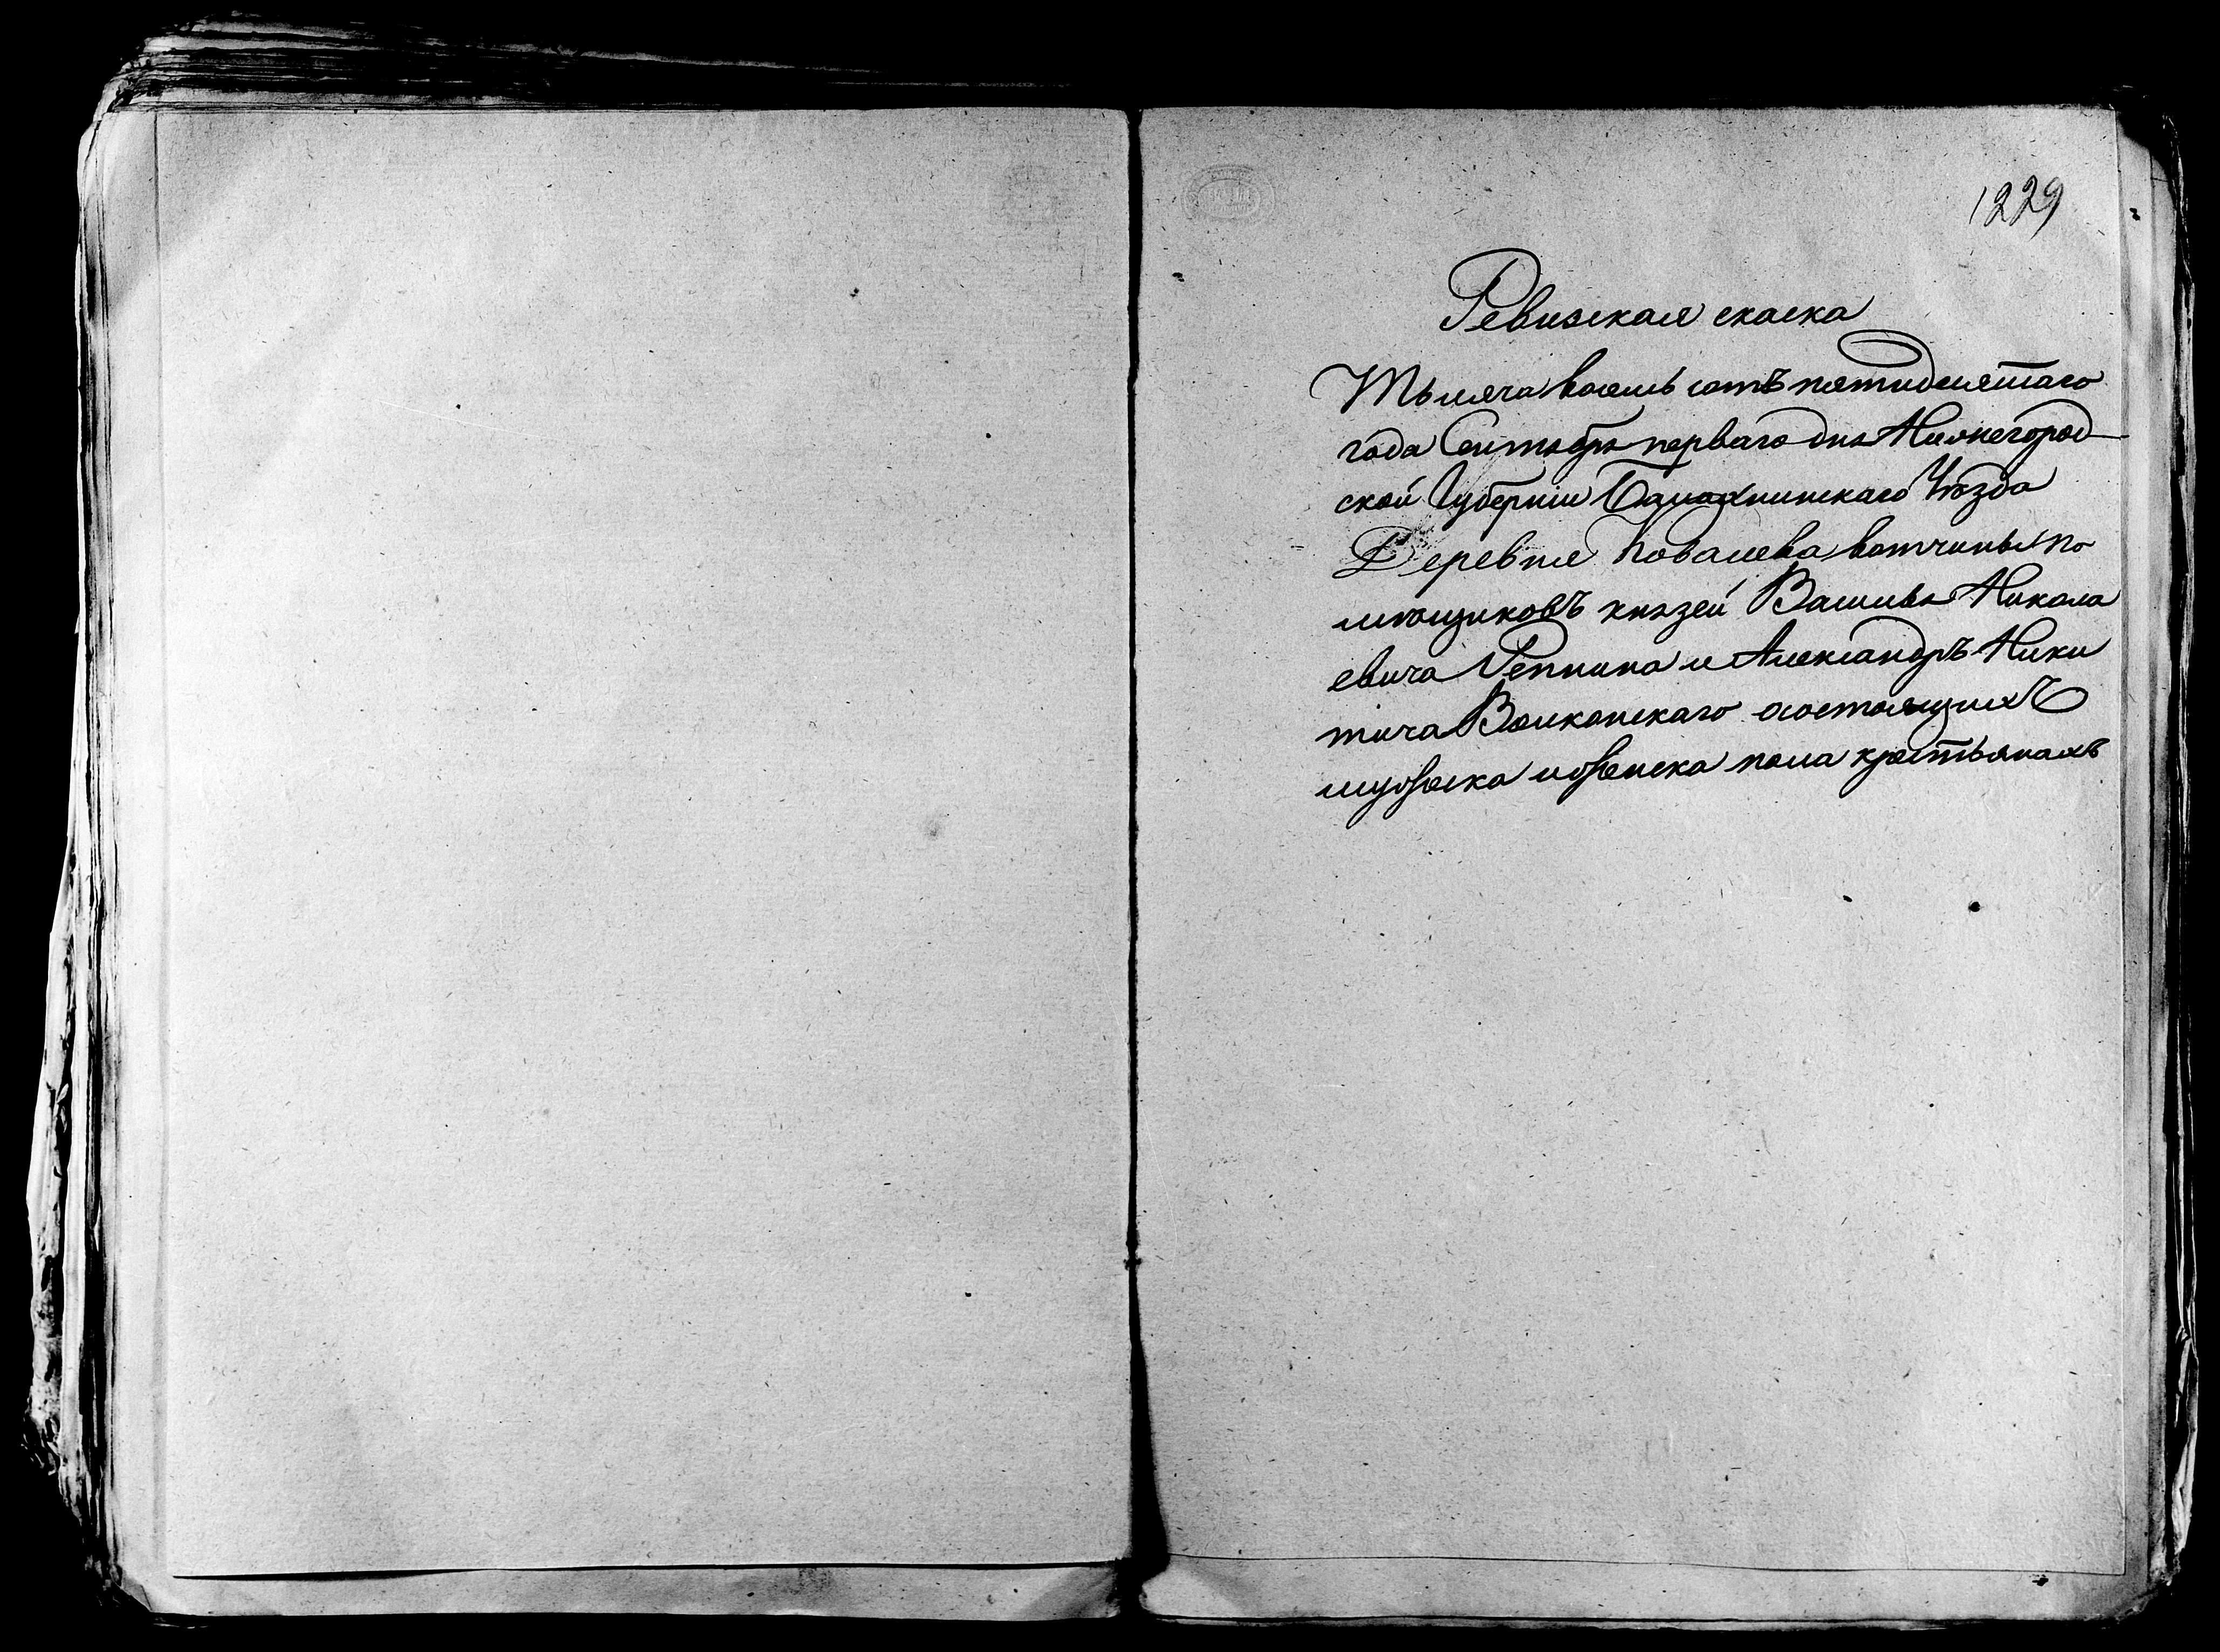 1229
Ревизская скаска
Тысяча восемь сотъ пятидесятаго
года Сентября перваго дня Нижегород-
ской Губерніи Балахнинскаго Уѣзда
Деревня Ковалева вотчины по
мѣщиковъ князей Василья Никола
евича Репнина и Александръ Ники
тича Волконскаго осостоящихъ
мужеска иженска пола крестьянахъ